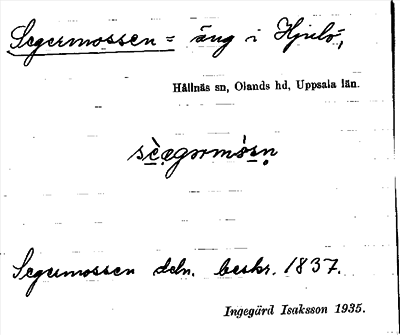 Segermossen = äng i Hjulö,
Hållnäs sn, Olands hd, Uppsala län.
sèægərmòsn
Segermossen deln. beskr. 1837.
Ingegärd Isaksson 1935.